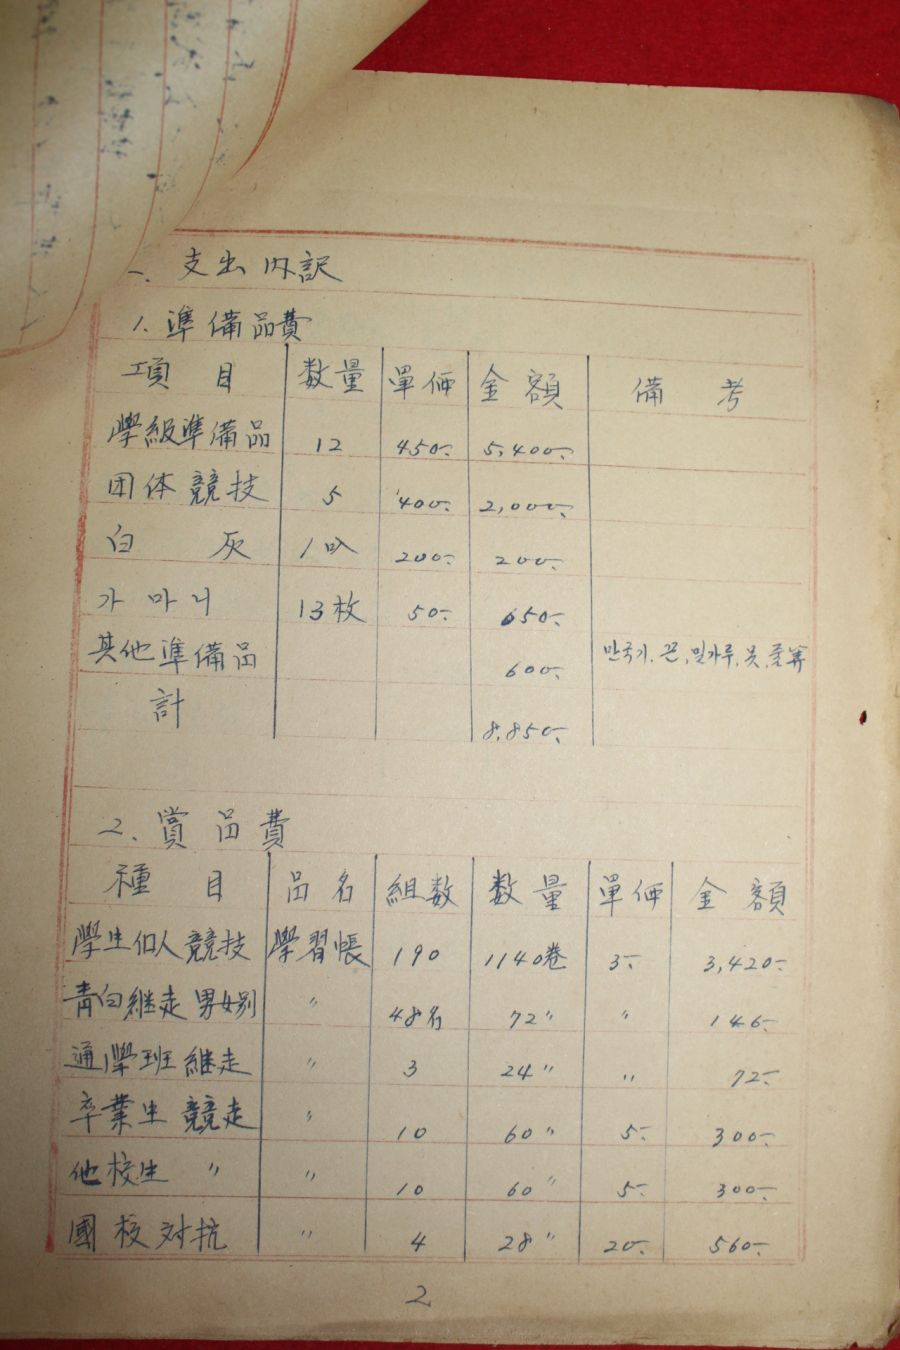 一、支出内訳
1. 準備品費
項目 数量 單価 金額 備考
學級準備品 12 450- 5,400-
団体競技 5 400- 2,000-
白灰 1叺 200- 200-
가마니 13枚 50- 650-
其他準備品 600- 만국기, 끈, 밀가루, 못, 풀等
計 8,850-
2. 賞品費
種目 品名 組数 数量 單価 金額
學生個人競技 學習帳 190 1140卷 3- 3,420-
青白継走男女別 〃 48名 72〃 〃 146-
通學班継走 〃 3 24〃 〃 72-
卒業生競走 〃 10 60〃 5- 300-
他校生〃 〃 10 60〃 5- 300-
國校対抗 〃 4 28〃 20- 560-
2